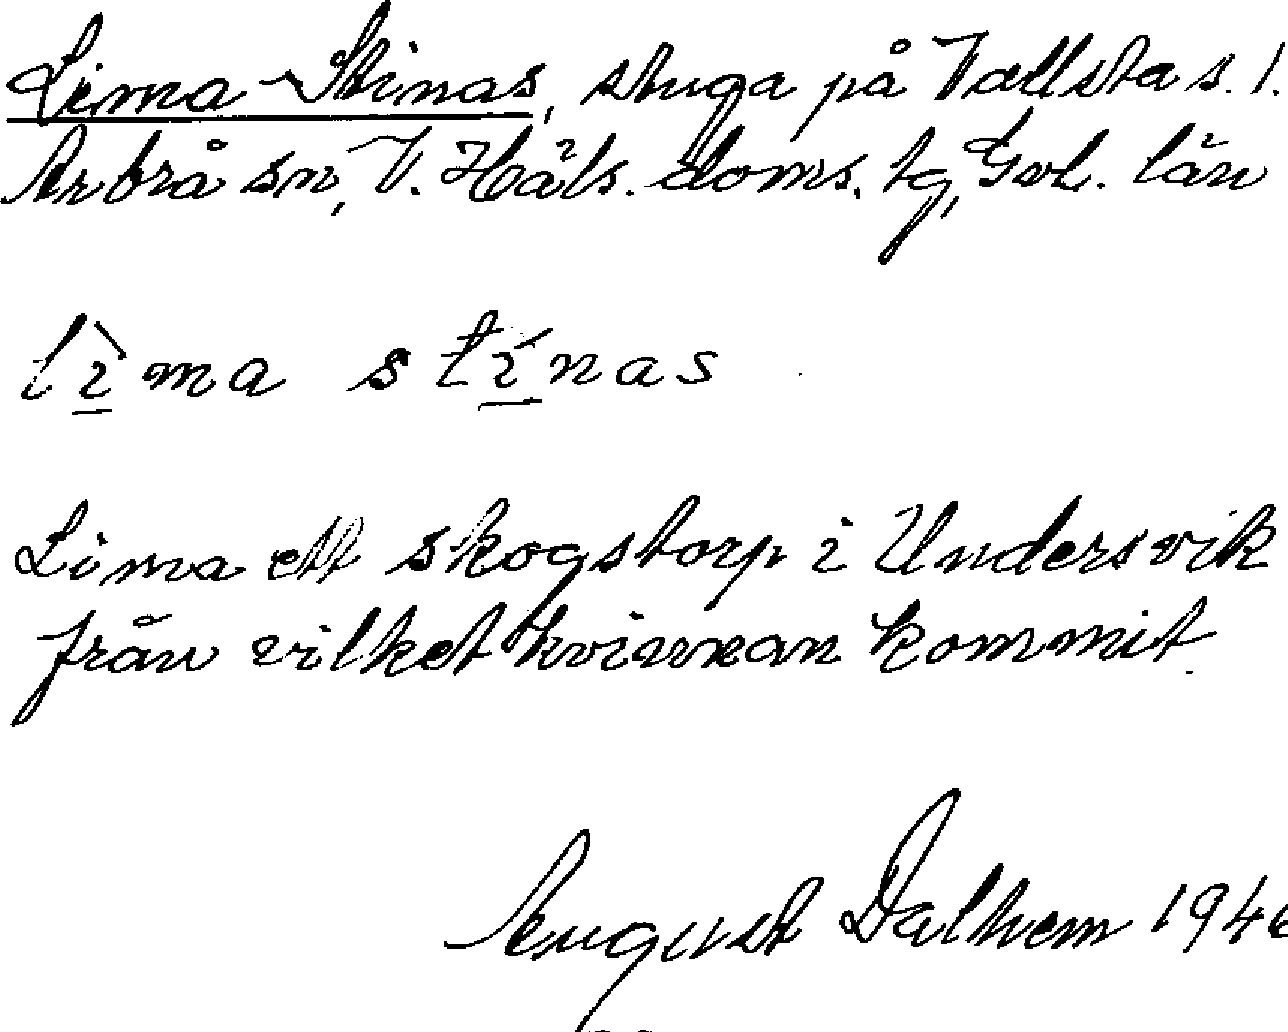 Lima-Stinas, stuga på Vallsta s. 1.
Arbrå sn, V. Häls. doms. tg, Gvl. län
lìma stínas
Lima ett skogstorp i Undersvik
från vilket kvinnan kommit.
August Dalhem 194